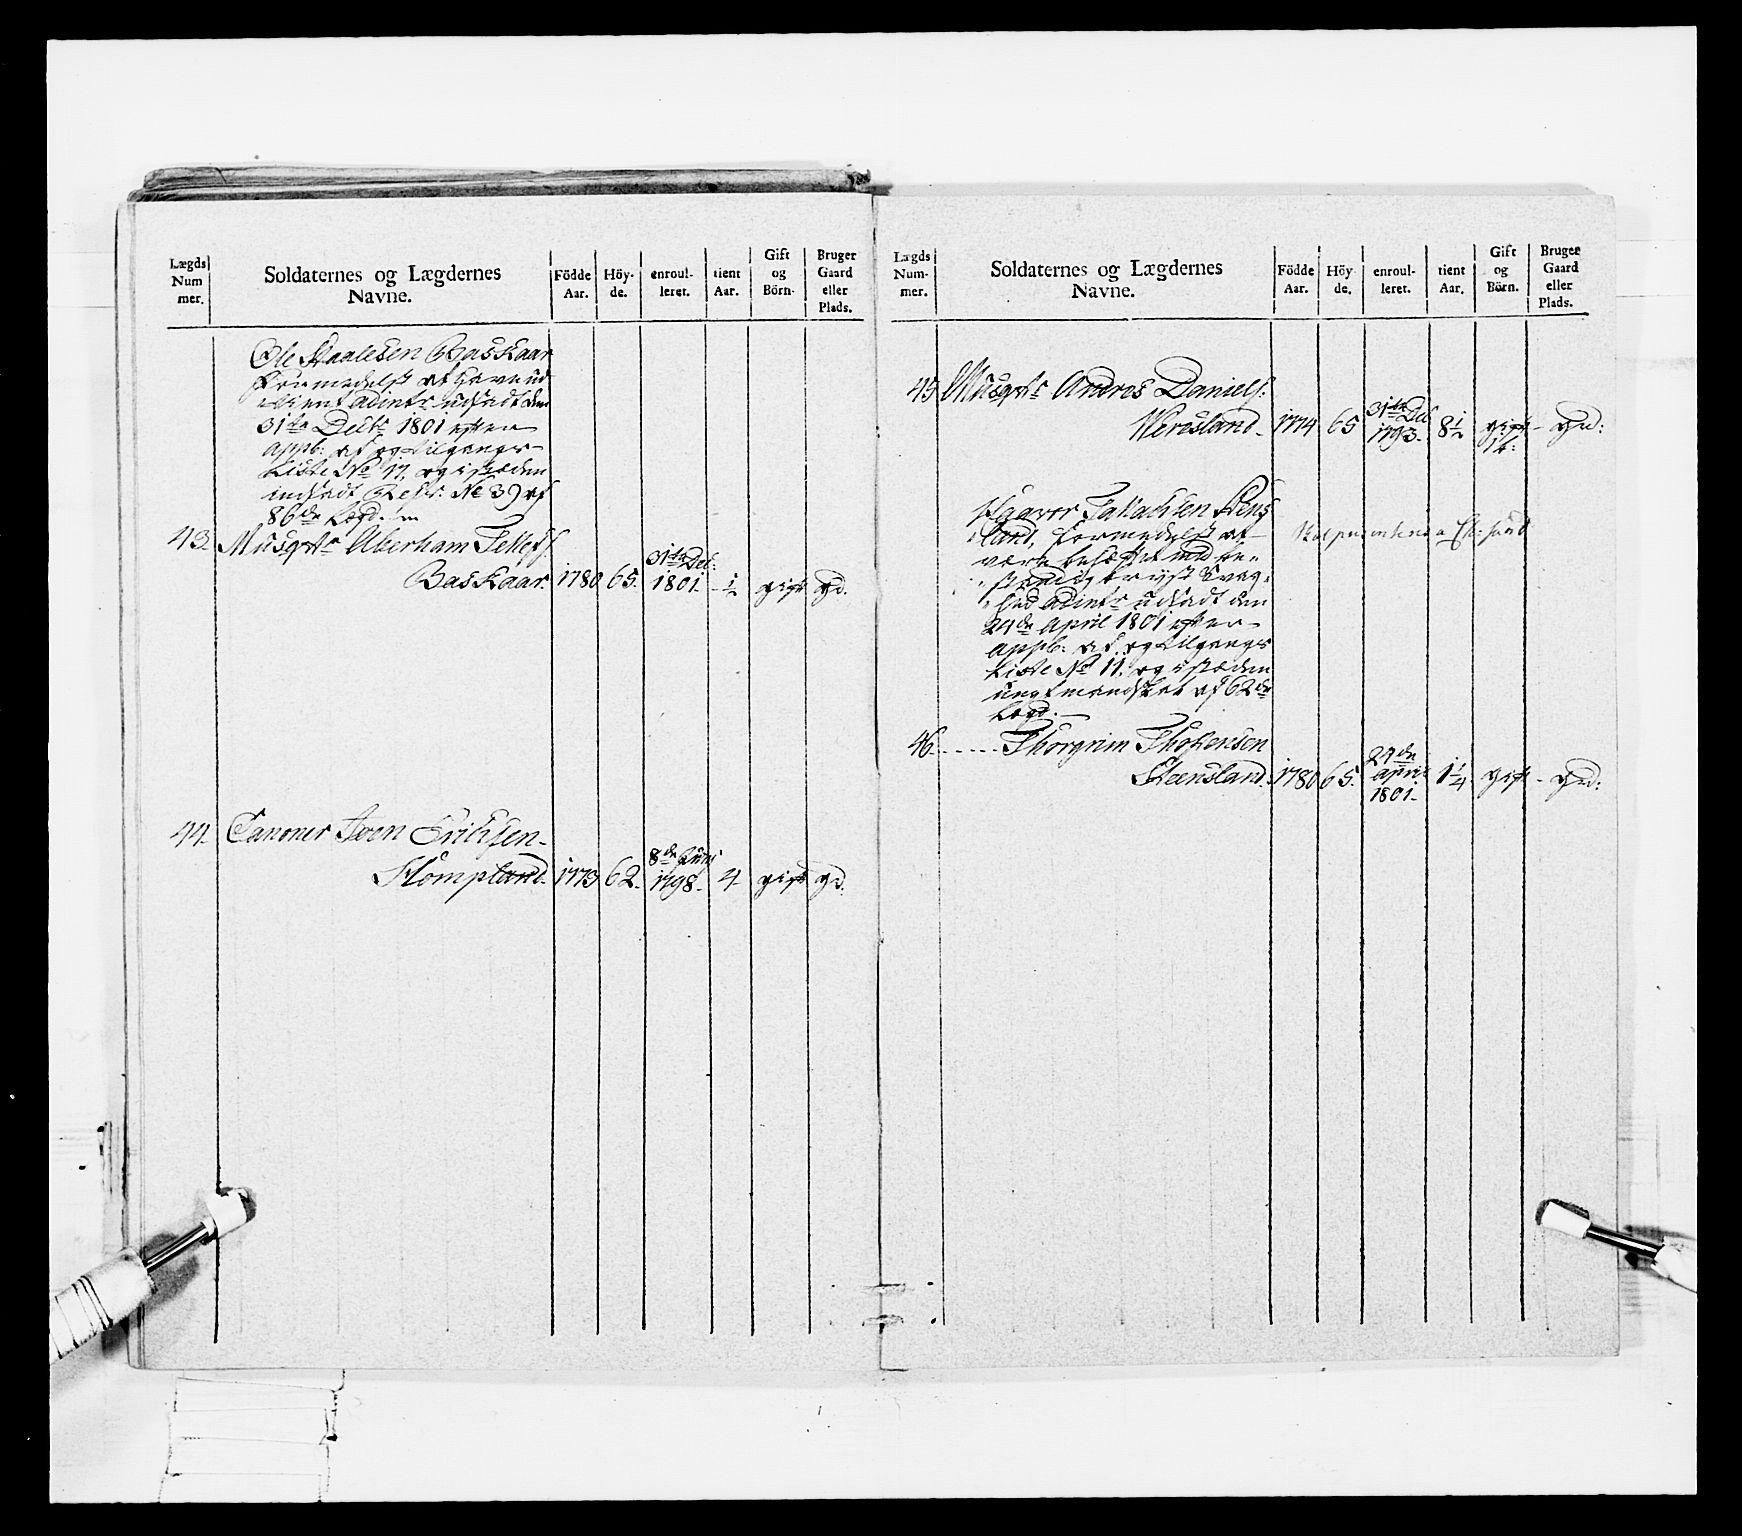 Lægds Num mer.
Soldaternes og Lægdernes Navne.
Födde Aar.
Höy- de.
enroul- leret.
tient Aar.
Gift og Börn.
Bruger Gaard eller Plads.
Ole Staalesen Baskaar
formedelst at have ud
tient adints udsadt den
31te Decbr 1801 efter
appb: af og tilgangs-
Liste No 17, og i stæden
indsadt No 39 af
86de Lægd.
43. Musqtr Aberham Tellefs.
Baskaar. 1780 65. 31te Dec: 1801. ½ gift gd.
44. Canoner Sven Erichsen
Stompland. 1773 62. 8de Juny 1798. 4. gift gd.
Lægds Num- mer.
Soldaternes og Lægdernes Navne.
Födde Aar.
Höy de.
enroul- leret.
tient Aar.
Gift og Börn.
Bruger Gaard eller Plads.
45. Musqtr Andres Daniels:
Weresland. 1774 65 31te Dec 1793. 8½ gift 1b: gd:
Haaver
land, formedelst at
være behæftet med be-
standig bryst Svag-
hed adints udsadt den
24de April 1801 efter
appb: af og tilgangs
Liste No 11, og i stæden
ungt mandskab af 62de
Lægd.
46. Thorgrim
Steensland. 1780 65. 24de April 1801. 1¼ gift - gd: